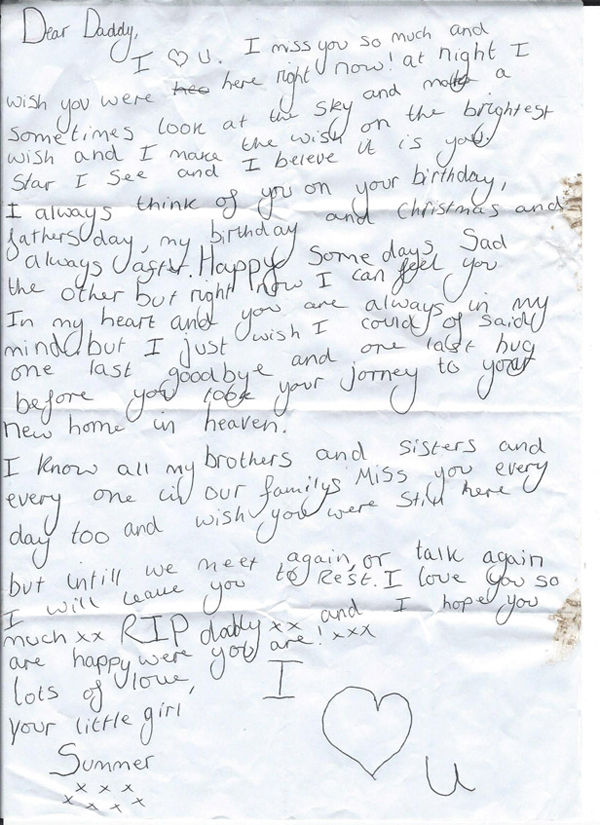 Dear Daddy,
I ♡ U. I miss you so much and
wish you were heo here right now! at night I
sometimes look at the sky and make a
wish and I make the wish on the brightest
Star I see and I beleve it is you.
I always think of you on your birthday,
fathers day, my birthday and Christmas and
always after. Happy some days Sad
the other but right now I can feel you
In my heart and you are always in my
mind, but I just wish I could of said
one last goodbye and one last hug
before you took your jorney to your
new home in heaven.
I know all my brothers and sisters and
every one in our familys Miss you every
day too and wish you were still here
but intill we meet again, or talk again
I will leave you to Rest. I love you so
much xx RIP daddy xx and I hope you
are happy were you are! xxx
lots of love,
your little girl
Summer
x x x
x x x x
I
♡
U